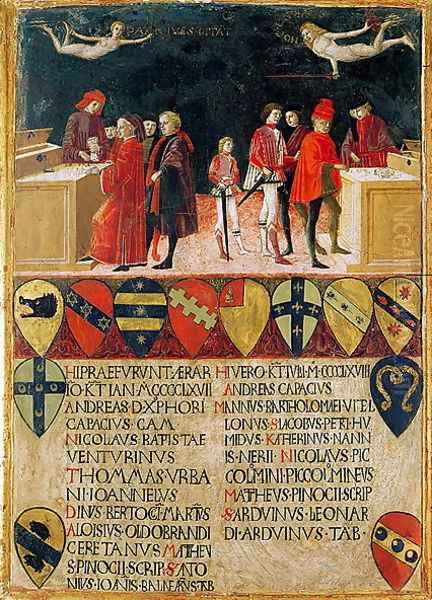 PAX CIVES OPTAT
HI PRAEFVRVNT ÆRAR
IO KT IAN M CCCCLXVII
ANDREAS D XPHORI
CAPACIVS CAM
NICOLAVS BATISTAE
VENTVRINVS
THOMMAS VRBA
NI IOANNELVS
DINVS BERTOCI MARTVS
ALOISIVS OLDOBRANDI
CERETANVS MATHEV
S PINOCII SCRIP SATO
NIVS IOHIS
HI VERO KT IVBI M CCCCLXVIII
ANDREAS CAPACIVS
MANNVS BARTHOLOMEI VITEL
LONVS IACOBVS PETI HV
MIDVS KATHERINVS NANN
IS NERII NICOLAVS PIC
COLMINI PICCOLMINEVS
MATHEVS PINOCII SCRIP
SARDVINVS LEONAR
DI ARDVINVS TAB